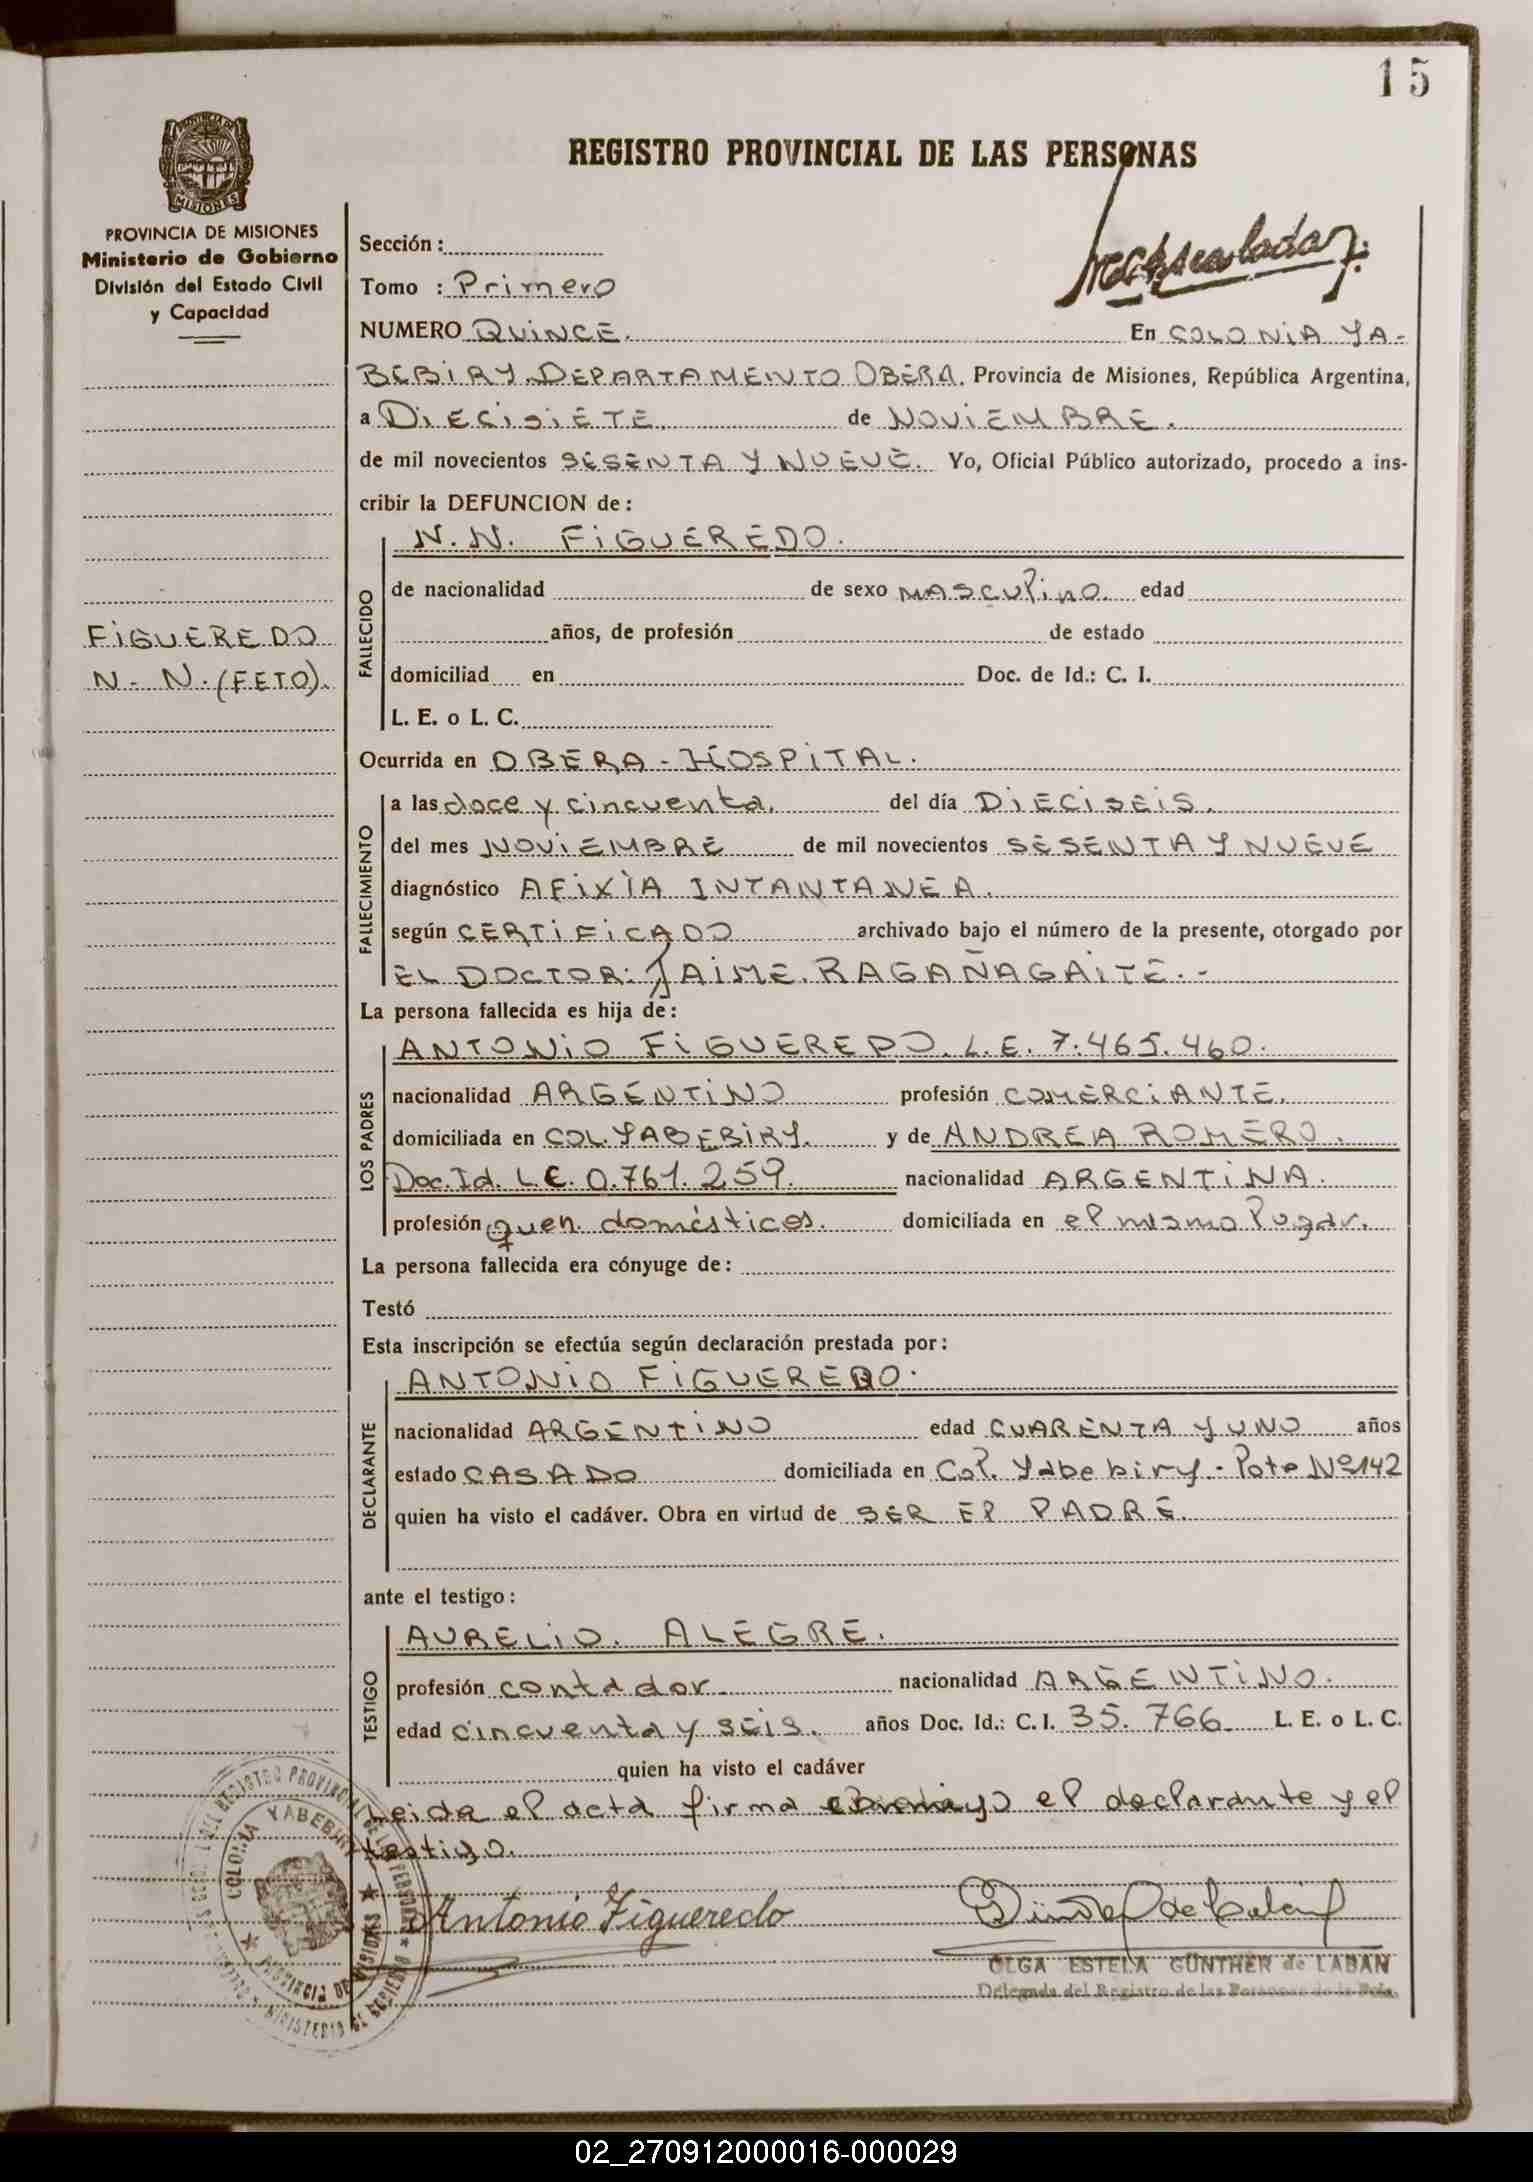 15
REGISTRO PROVINCIAL DE LAS PERSONAS
PROVINCIA DE MISIONES
Ministerio de Gobierno
División del Estado Civil
y Capacidad
Sección:
Tomo : Primero
NUMERO QUINCE. En COLONIA YA-
BEBIRY. DEPARTAMENTO OBERA. Provincia de Misiones, República Argentina,
a DIECISIETE. de NOVIEMBRE.
de mil novecientos SESENTA Y NUEVE. Yo, Oficial Público autorizado, procedo a ins-
cribir la DEFUNCION de:
N.N. FIGUEREDO.
FALLECIDO
de nacionalidad de sexo MASCULINO. edad
años, de profesión de estado
FIGUEREDO
N. N. (FETO).
domiciliad en Doc. de Id.: C. I.
L. E. o L. C.
Ocurrida en OBERA - HOSPITAL.
FALLECIMIENTO
a las doce y cincuenta. del día DIECISEIS.
del mes NOVIEMBRE de mil novecientos SESENTA Y NUEVE
diagnóstico AFIXÌA INTANTANEA.
según CERTIFICADO archivado bajo el número de la presente, otorgado por
EL DOCTOR: JAIME. RAGAÑAGAITE. -
La persona fallecida es hija de:
LOS PADRES
ANTONIO FIGUEREDO. L.E. 7.465.460.
nacionalidad ARGENTINO profesión COMERCIANTE.
domiciliada en COL. YABEBIRY. y de ANDREA ROMERO.
Doc. Id. L.E. 0.761.259. nacionalidad ARGENTINA.
profesión quen. domésticos. domiciliada en el mismo lugar.
La persona fallecida era cónyuge de:
Testó
Esta inscripción se efectúa según declaración prestada por:
DECLARANTE
ANTONIO FIGUEREDO.
nacionalidad ARGENTINO edad CUARENTA Y UNO años
estado CASADO domiciliada en Col. Yabebiry - Lote Nº 142
quien ha visto el cadáver. Obra en virtud de SER El PADRE.
ante el testigo:
TESTIGO
AURELIO. ALEGRE.
profesión contador. nacionalidad ARGENTINO.
edad cincuenta y seis. años Doc. Id.: C. I. 35.766 L. E. o L. C.
quien ha visto el cadáver
Leida el acta firma el declarante y el
testigo.
COLONIA YABEBIRY
PROVINCIA DE MISIONES
Antonio Figueredo
OLGA ESTELA GÜNTHER de LABAN
Delegada del Registro de las Personas de la Pcia.
02_270912000016-000029